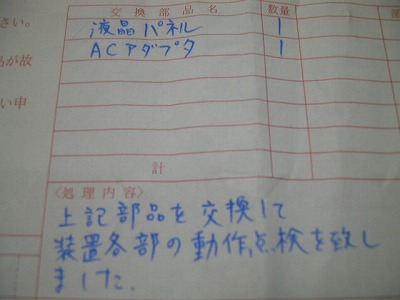 さい。
品が故
い申
交換部品名 数量
液晶パネル 1
ACアダプタ 1
計
〈処理内容〉
上記部品を交換して
装置各部の動作点検を致し
ました.